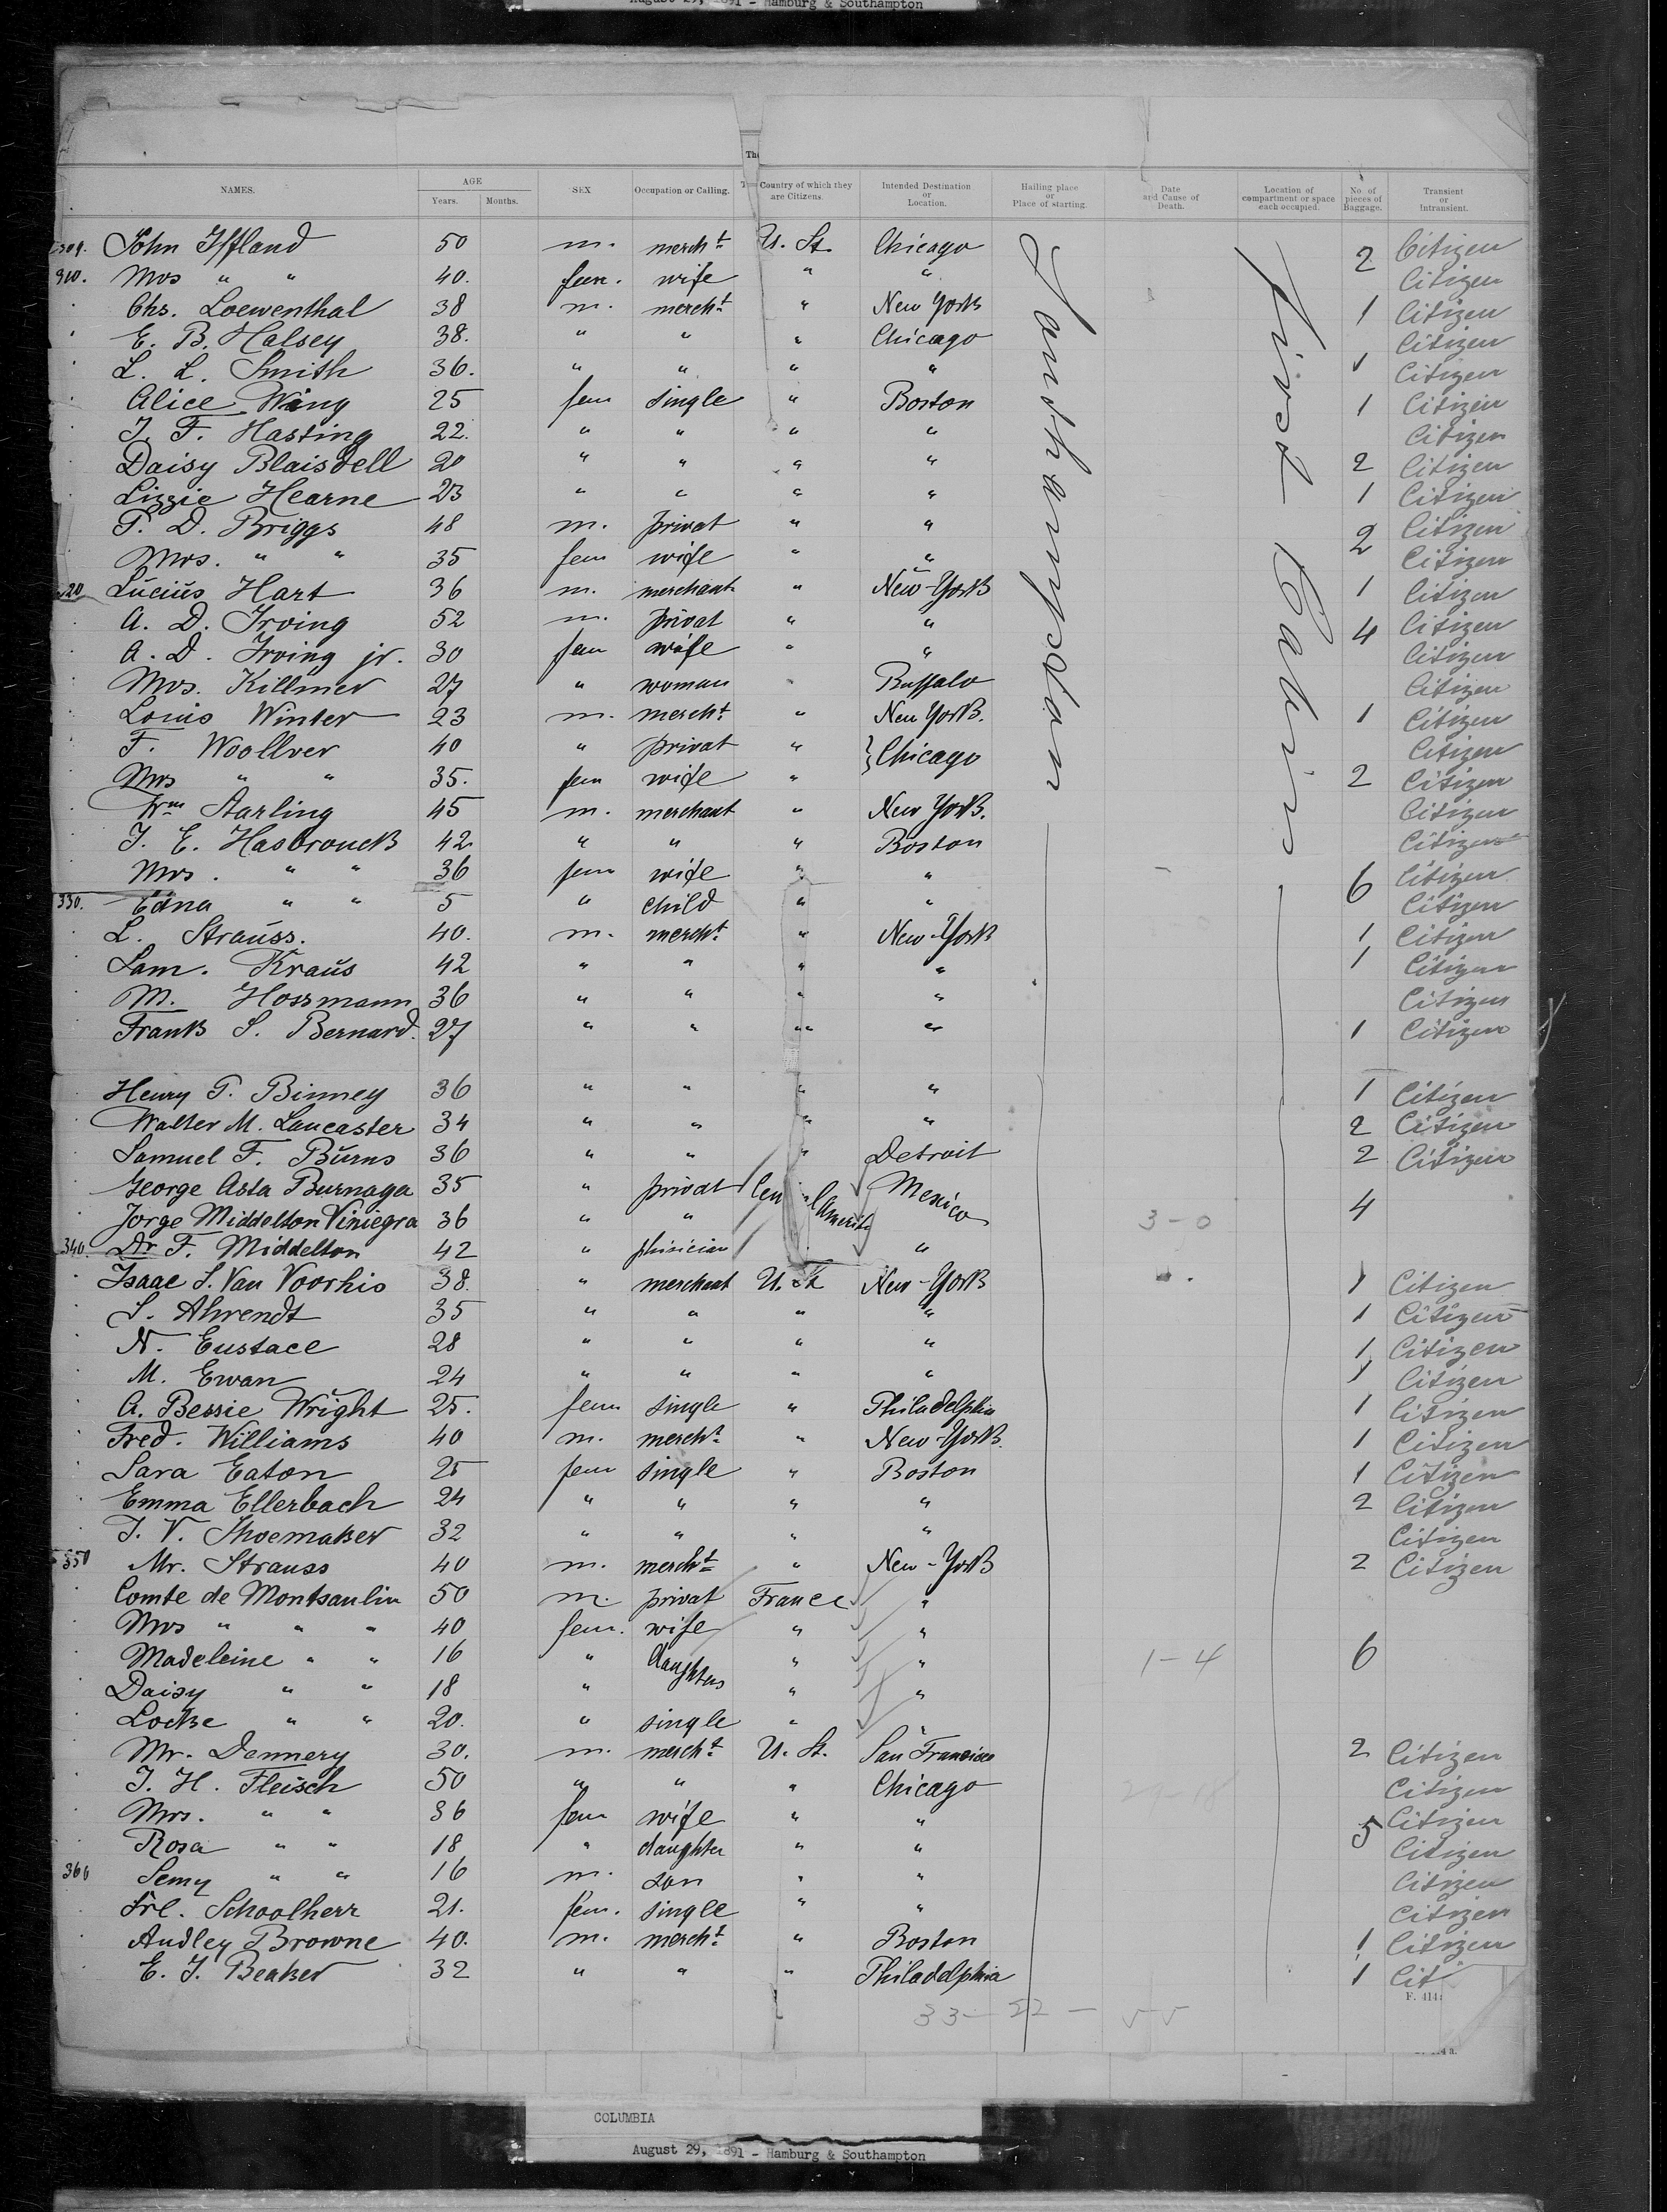 August 29, 1891 - Hamburg & Southampton
NAMES. AGE Years. Months. SEX Occupation or Calling. Country of which they are Citizens. Intended Destination or Location. Hailing place or Place of starting. Date and Cause of Death. Location of compartment or space each occupied. No. of pieces of Baggage. Transient or Intransient.
Southampton
First Cabin
309. John Iffland 50 m. mercht U. St. Chicago 2 Citizen
310. Mrs " " 40. fem. wife " " Citizen
Chs. Loewenthal 38 m. mercht " New York 1 Citizen
E. B. Halsey 38. " " " Chicago Citizen
L. L. Smith 36. " " " " 1 Citizen
Alice Wing 25 fem single " Boston 1 Citizen
J. F. Hasting 22. " " " " Citizen
Daisy Blaisdell 20 " " " " 2 Citizen
Lizzie Hearne 23 " " " " 1 Citizen
P. D. Briggs 48 m. privat " " 2 Citizen
Mrs. " " 35 fem wife " " Citizen
320 Lucius Hart 36 m. merchant " New-York 1 Citizen
A. D. Irving 52 m. privat " " 4 Citizen
A. D. Irving jr. 30 fem wife " " Citizen
Mrs. Killmer 27 " woman " Buffalo Citizen
Louis Winter 23 m. mercht " New York. 1 Citizen
F. Woollver 40 " privat " } Chicago Citizen
Mrs " " 35. fem wife " 2 Citizen
Wm Starling 45 m. merchant " New York. Citizen
J. E. Hasbrouck 42 " " " Boston Citizen
Mrs. " " 36 fem wife " " 6 Citizen
330. Edna " " 5 " child " " Citizen
L. Strauss. 40. m. mercht " New-York 1 Citizen
Sam. Kraus 42 " " " " 1 Citizen
M. Hossmann 36 " " " " Citizen
Frank S. Bernard. 27 " " " " 1 Citizen
Henry P. Binney 36 " " " " 1 Citizen
Walter M. Lancaster 34 " " " " 2 Citizen
Samuel F. Burns 36 " " " Detroit 2 Citizen
George Asta Burnaga 35 " privat Mexico 4
Jorge Middelton Viniegra 36 " " 3-0
340. Dr F. Middelton 42 " phisician "
Isaac S. Van Voorhis 38. " merchant U. St. New-York 1 Citizen
S. Ahrendt 35 " " " " 1 Citizen
N. Eustace 28 " " " " 1 Citizen
M. Ewan 24 " " " " 1 Citizen
A. Bessie Wright 25. fem single " Philadelphia 1 Citizen
Fred. Williams 40 m. mercht " New-York. 1 Citizen
Sara Eaton 25 fem single " Boston 1 Citizen
Emma Ellerbach 24 " " " " 2 Citizen
J. V. Shoemaker 32 " " " " Citizen
350 Mr. Strauss 40 m. mercht " New-York 2 Citizen
Comte de Montsaulin 50 m. privat France "
Mrs " " " 40 fem. wife " "
Madeleine " " 16 " daughters " " 1-4 6
Daisy " " 18 " " "
Locke " " 20. " single "
Mr. Dennery 30. m. mercht U. St. San Francisco 2 Citizen
J. H. Fleisch 50 " " " Chicago Citizen
Mrs. " " 36 fem wife " " 5 Citizen
Rosa " " 18 " daughter " " Citizen
360 Semy " " 16 m. son " " Citizen
Frl. Schoolherr 21. fem. single " " Citizen
Audley Browne 40. m. mercht " Boston 1 Citizen
E. J. Beaker 32 " " " Philadelphia 1 Cit
F. 414
33-22-
COLUMBIA
August 29, 1891 - Hamburg & Southampton